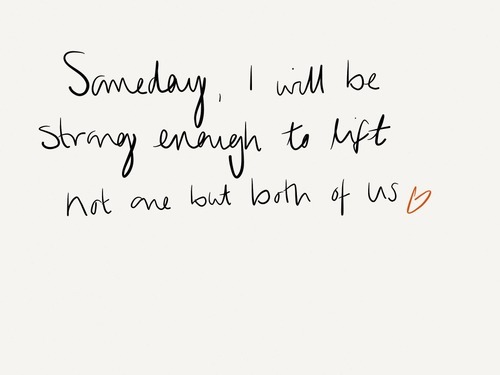 Someday, I will be
strong enough to lift
not one but both of us